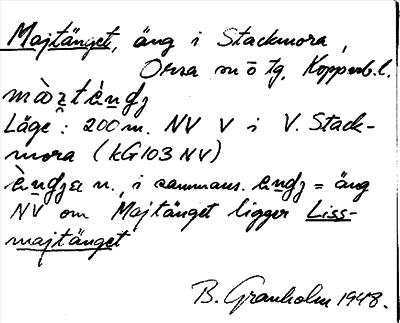 Majtänget, äng i Stackmora,
Orsa sn o tg. Kopparb.l.
Läge: 200 m. NV V i V. Stack-
mora (kG103 NV)
n., i sammans. = äng
NV om Majtänget ligger Liss-
majtänget
B. Granholm 1948.